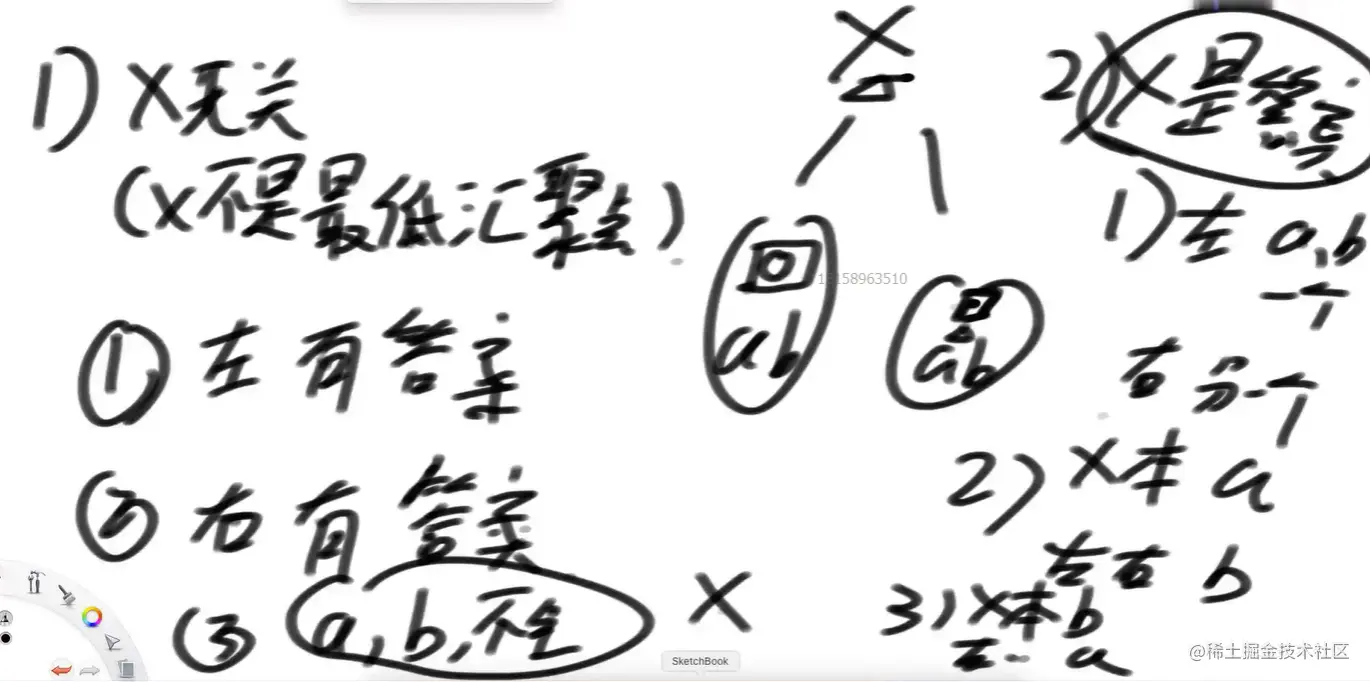 1) X无关
(X不是最低汇聚点)
① 左有答案
② 右有答案
③ a,b,不全
X
ab
ab
18158963510
X
2) X是答案
1) 左 a,b
一个
右 另一个
2) X本 a
左右 b
3) X本b
左… a
SketchBook
@稀土掘金技术社区